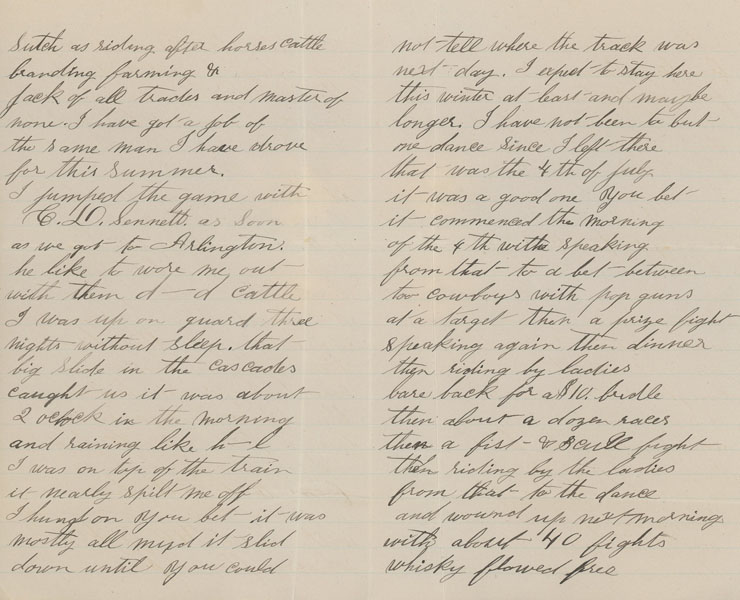 Sutch as riding after horses cattle
branding farming &
jack of all trades and master of
none. I have got a job of
the same man I have drove
for this summer.
I jumped the game with
C. D. Sennett as soon
as we got to Arlington.
he like to wore me out
with them d—d cattle
I was up on guard three
nights without sleep. that
big slide in the cascades
caught us it was about
2 oclock in the morning
and raining like h—l
I was on top of the train
it nearly spilt me off
I hung on you bet it was
mostly all mud it slid
down until you could
not tell where the track was
next day. I expect to stay here
this winter at least and maybe
longer. I have not been to but
one dance since I left there
that was the 4th of July
it was a good one you bet
it commenced the morning
of the 4th with speaking
from that to a bet between
too cowboys with pop guns
at a target then a prize fight
speaking again then dinner
then riding by ladies
bare back for a $10. bridle
then about a dozen races
then a fist & scull fight
then riding by the ladies
from that to the dance
and wound up next morning
with about 40 fights
whisky flowed free